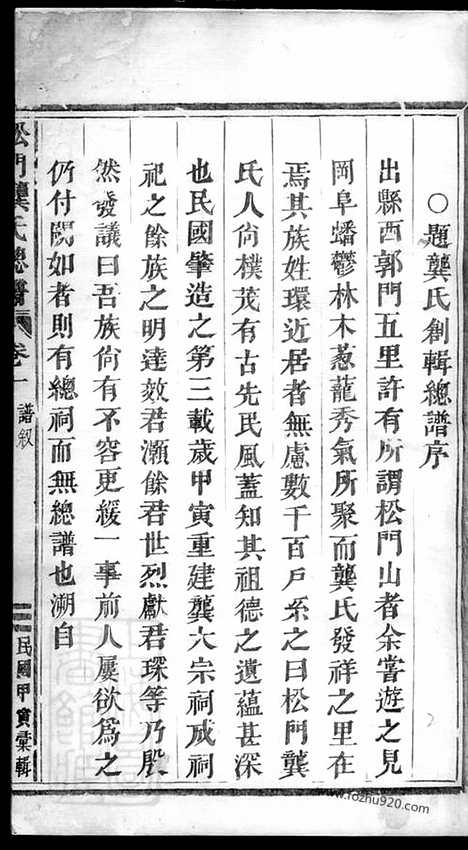 ○題龔氏創輯總譜序
出縣西郭門五里許有所謂松門山者余嘗遊之見
岡阜蟠鬱林木蔥蘢秀氣所聚而龔氏發祥之里在
焉其族姓環近居者無慮數千百戶系之曰松門龔
氏人尙樸茂有古先民風蓋知其祖德之遺蘊甚深
也民國肇造之第三載歲甲寅重建龔大宗祠成祠
祀之餘族之明達效君灝餘君世烈獻君琛等乃殷
然發議曰吾族尙有不容更緩一事前人屢欲爲之
仍付闕如者則有總祠而無總譜也溯自
松門龔氏總譜 卷一 譜叙 民國甲寅彙輯
www.fozhu920.com